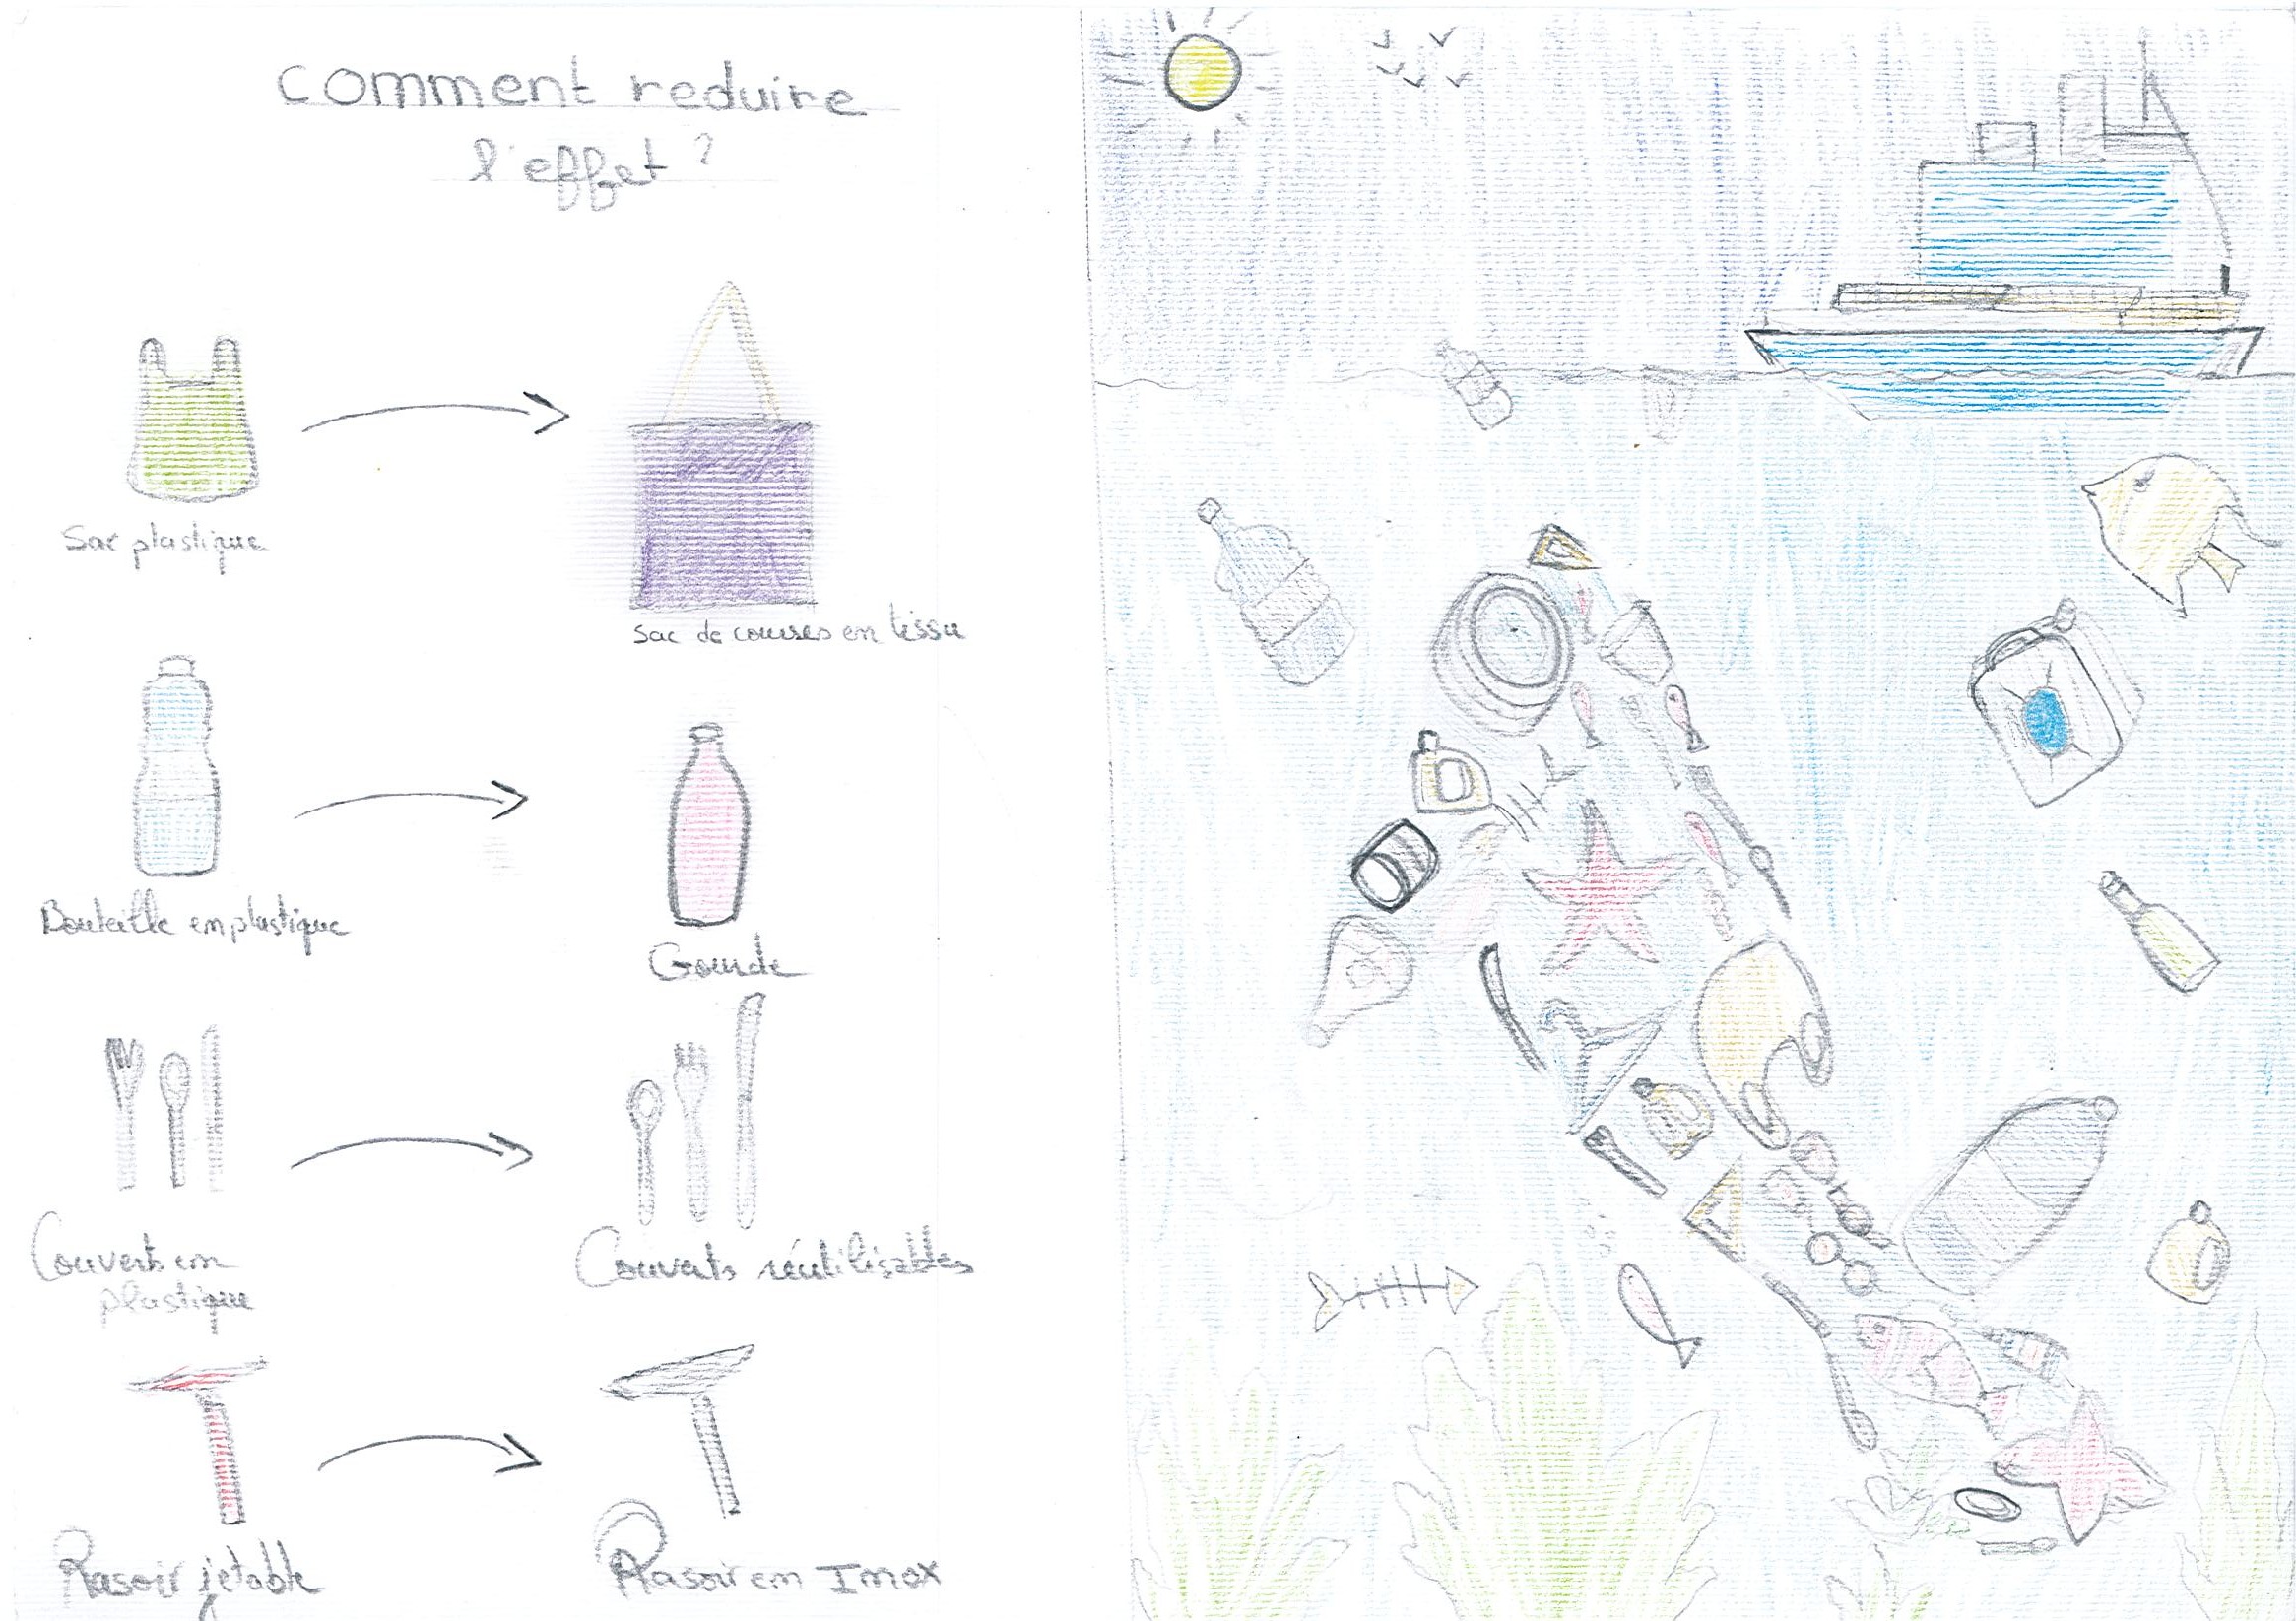 Comment reduire
l'effet ?
Sac plastique
sac de courses en tissu
Bouteille en plastique
Gourde
Couverts en
plastique
Couverts réutilisables
Rasoir jetable
Rasoir en Inox